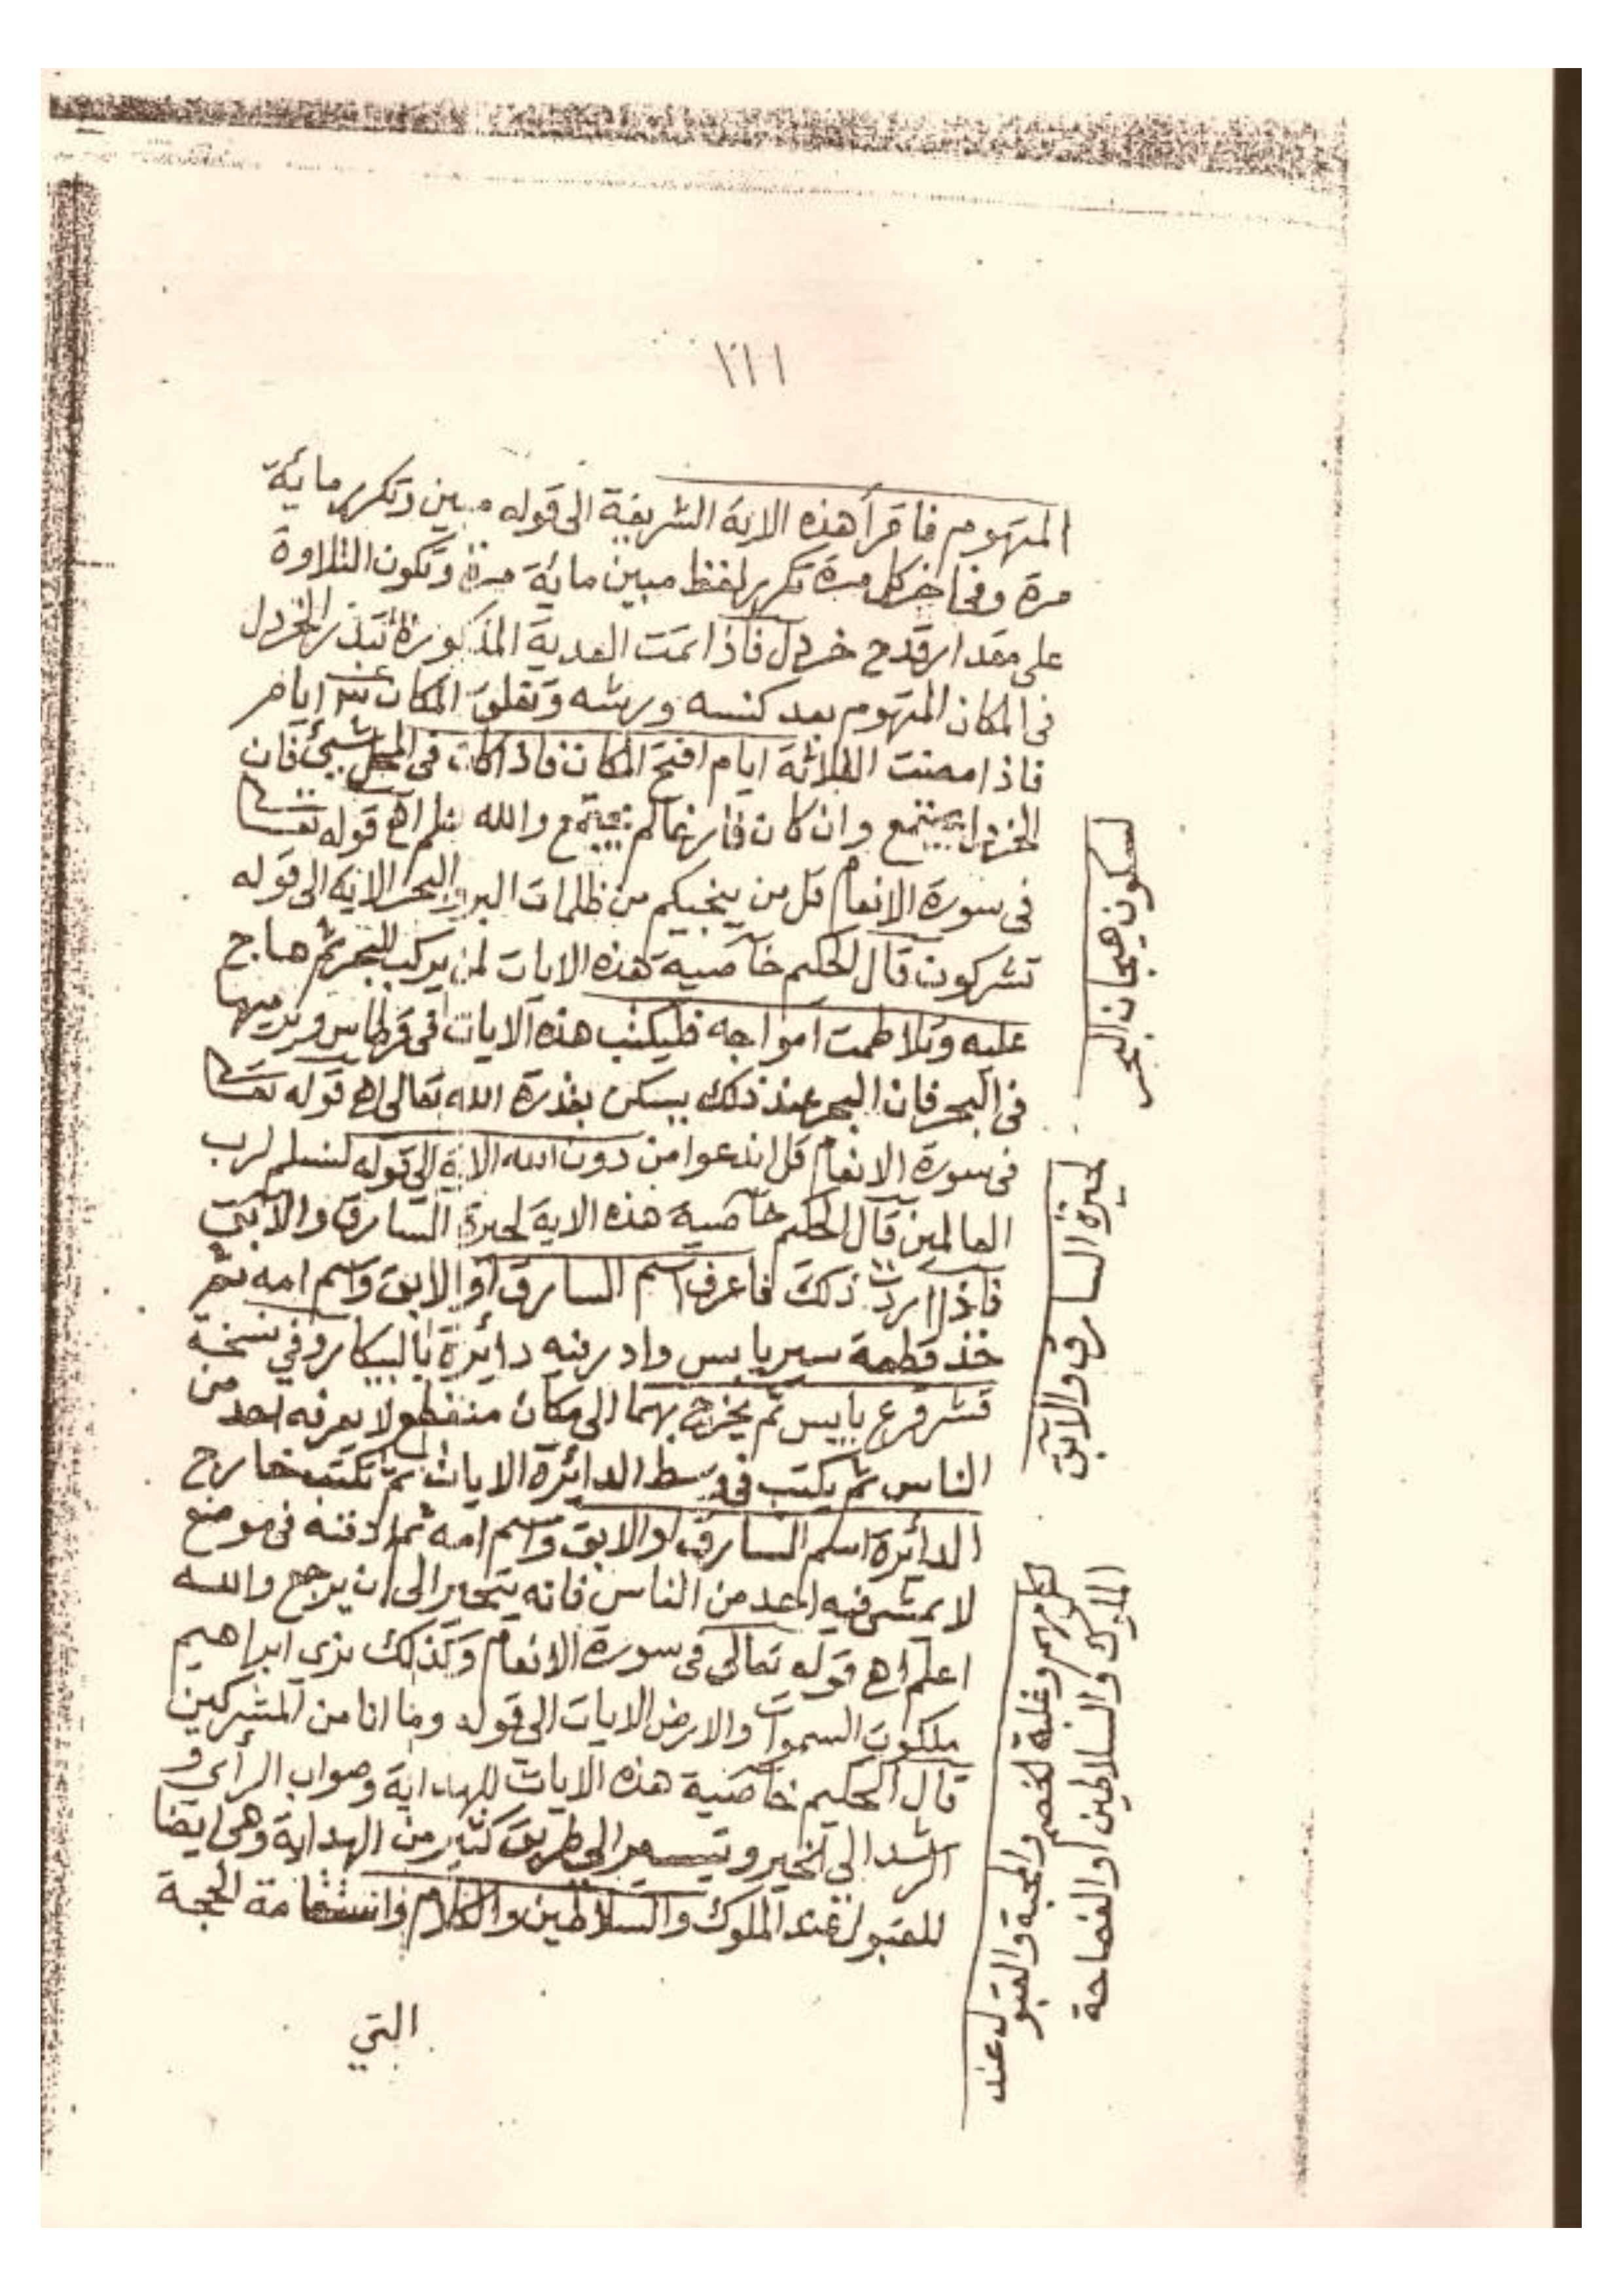 ١١١
المتهوم فاقرأ هذه الاية الشريفة الى قوله مبين وتكرر مائة
مرة وفى اخر كل مرة تكرر لفظ مبين مائة مرة وتكون التلاوة
على مقدار قدح خردل فاذا تمت العدية المذكورة تبذر الخردل
فى المكان المتهوم بعد كنسه ورشه وتغلق المكان ايام
فاذا مضت الثلاثة ايام افتح المكان فاذا كان فى المحل شيئ فان
الخردل يجتمع وان كان فارغا لم يجتمع والله اعلم اهـ قوله تعالى
فى سورة الانعام قل من ينجيكم من ظلمات البر والبحر الاية الى قوله
تشركون قال الحكيم خاصية هذه الايات لمن يركب البحر ثم هاج
عليه وتلاطمت امواجه فليكتب هذه الايات فى قرطاس ويرميها
فى البحر فان البحر عند ذلك يسكن بقدرة الله تعالى اهـ قوله تعالى
فى سورة الانعام قل اندعوا من دون الله الاية الى قوله لنسلم لرب
العالمين قال الحكيم خاصية هذه الاية لحيرة السارق والآبق
فاذا اردت ذلك فاعرف اسم السارق او الابق واسم امه ثم
خذ قطعة سير يابس وادر فيه دائرة بالبيكار وفي نسخة
قشر قرع يابس ثم يخرج بهما الى مكان منقطع لا يعرفه احد من
الناس ثم يكتب فى وسط الدائرة الايات ثم تكتب خارج
الدائرة اسم السارق او الابق واسم امه ثم ادفنه فى موضع
لا يمشى فيه احد من الناس فانه يتحير الى ان يرجع والله
اعلم اهـ قوله تعالى فى سورة الانعام وكذلك نرى ابراهيم
ملكوت السموات والارض الايات الى قوله وما انا من المشركين
قال الحكيم خاصية هذه الايات للهداية وصواب الرأى و
الرشد الى الخير وتيسير الى طريق كثير من الهداية وهى ايضا
للقبول عند الملوك والسلاطين والكلام واستقامة الحجة
التي
لسكون هيجان البحر
لحيرة السارق والآبق
لكل مهم وغلبة الخصم والمحبة والقبول عند
الملوك والسلاطين او الفصاحة